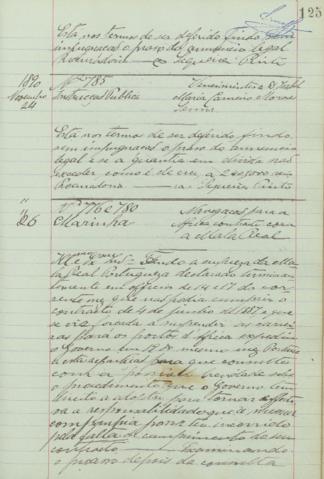 125
Está nos termos de ser deferido findo sem
impugnação o prazo do annuncio legal
Procuradoria — a) Sequeira Pinto
1890
Novembro
24
Nº 785
Instrucção Publica
Vencimentos a D. Isabel
Maria
Está nos termos de ser deferido findo,
sem impugnação o prazo do annuncio
legal e se a quantia em divida não
exceder, como é de crer, a
Procuradoria — a) Sequeira Pinto
" 26
Nº 776 e 780
Marinha
Navegação para a
Africa contracto com
a Mala Real
Tendo a empreza da Ma
la Real Portugueza declarado terminan
temente em officios de 14 e 17 do cor
rente mez que não podia cumprir o
contracto de 4 de junho de 1889 e que
se via forçada a suspender as carrei
ras para os portos d'Africa
o Governo em 17 do mesmo mez
para que consulte
com a possivel brevidade sobre
o procedimento que o Governo tem
direito a adoptar para tornar effecti
va a responsabilidade que a mesma
companhia possa ter incorrido
pela falta de cumprimento do seu
contracto — Examinando
o processo depois de consulta